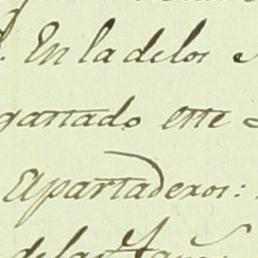 En la de los
gastado este
Apartaderos:
de las